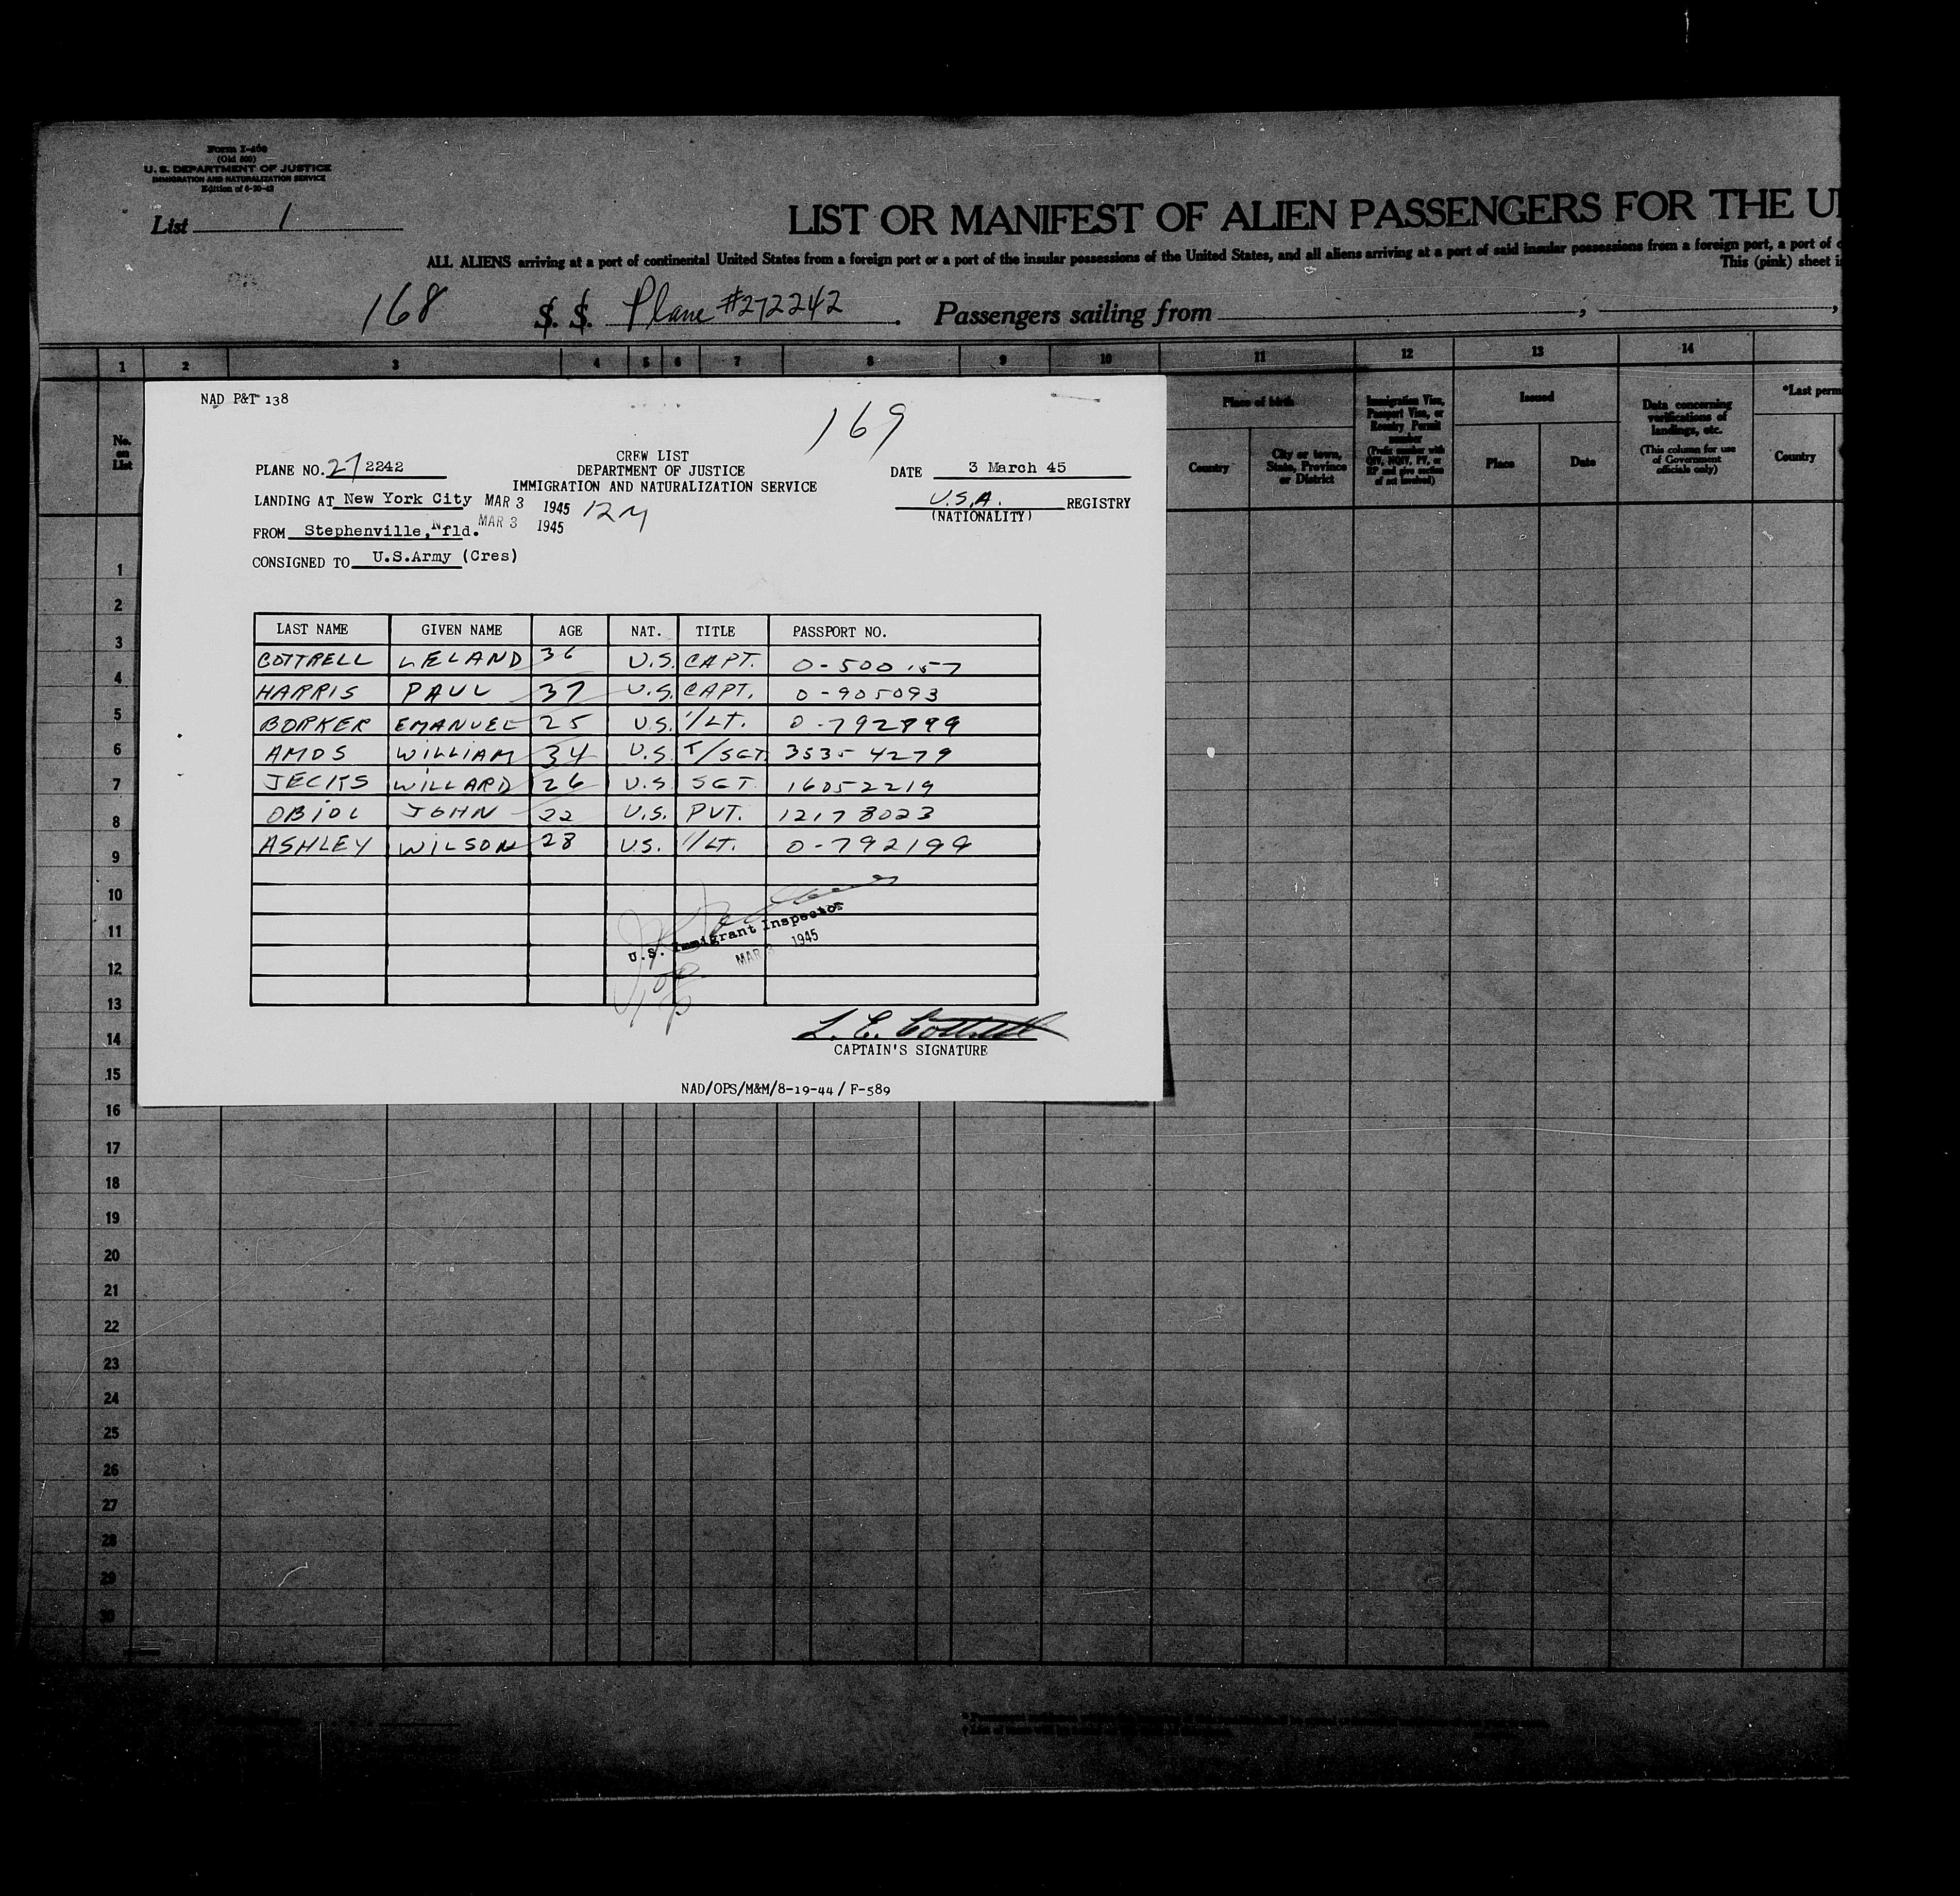 Form I-408
(Old 500)
U. S. DEPARTMENT OF JUSTICE
IMMIGRATION AND NATURALIZATION SERVICE
Edition of 6-20-42
List 1
LIST OR MANIFEST OF ALIEN PASSENGERS FOR THE
ALL ALIENS arriving at a port of continental United States from a foreign port or a port of the insular possessions of the United States, and all aliens arriving at a port of said insular possessions from a foreign port, a port of
This (pink) sheet
168 S. S. Plane #272242 . Passengers sailing from , ,
1 2 3 4 5 6 7 8 9 10 11 12 13 14
No. on List
Place of birth
Country
City or town, State, Province or District
Immigration Visa, Passport Visa, or Reentry Permit number
(Prefix number with QIV, NQIV, PV, or RP and give section of act involved)
Issued
Place
Date
Data concerning verifications of landings, etc.
(This column for use of Government officials only)
*Last
Country
NAD P&T 138
169
CREW LIST
DEPARTMENT OF JUSTICE
IMMIGRATION AND NATURALIZATION SERVICE
PLANE NO. 27 2242
DATE 3 March 45
LANDING AT New York City MAR 3 1945 12M
U.S.A. REGISTRY
(NATIONALITY)
FROM Stephenville, Nfld. MAR 3 1945
CONSIGNED TO U.S.Army (Cres)
LAST NAME GIVEN NAME AGE NAT. TITLE PASSPORT NO.
COTTRELL LELAND 36 U.S. CAPT. 0-500157
HARRIS PAUL 37 U.S. CAPT. 0-905093
BORKER EMANUEL 25 U.S. 1/LT. 0-792899
AMOS WILLIAM 34 U.S. T/SGT. 3535 4279
JECKS WILLARD 26 U.S SGT 16052219
OBIOL JOHN 22 U.S. PVT. 12178023
ASHLEY WILSON 28 US. 1/LT. 0-792199
U.S. Immigrant Inspector
MAR 3 1945
L. E. Cottrell
CAPTAIN'S SIGNATURE
NAD/OPS/M&M/8-19-44/ F-589
1
2
3
4
5
6
7
8
9
10
11
12
13
14
15
16
17
18
19
20
21
22
23
24
25
26
27
28
29
30